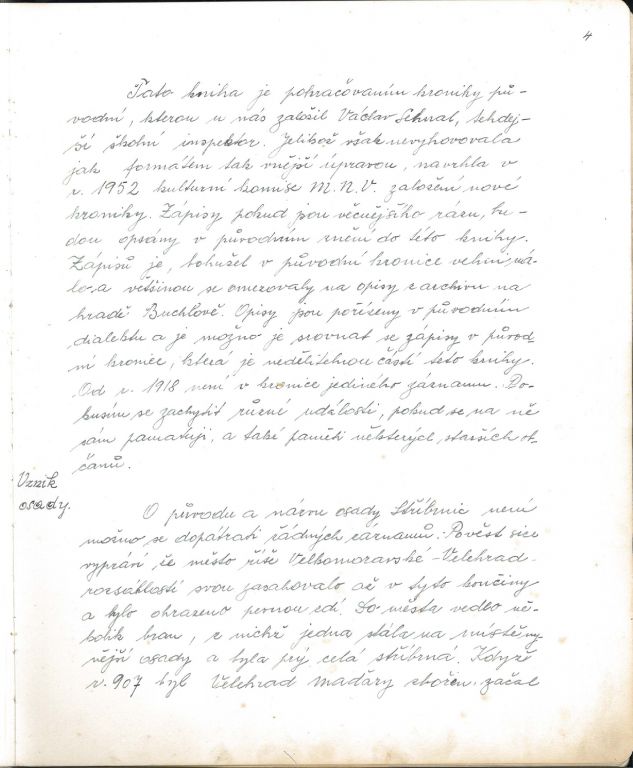 4
Tato kniha je pokračováním kroniky pů-
vodní, kterou u nás založil Václav Sehnal, tehdej-
ší školní inspektor. Jelikož však nevyhovovala
jak formátem tak vnější úpravou, navrhla v
r. 1952 kulturní komise M.N.V. založení nové
kroniky. Zápisy pokud jsou věcnějšího rázu, bu-
dou opsány v původním znění do této knihy.
Zápisů je, bohužel v původní kronice velmi má-
lo, a většinou se omezovaly na opisy z archivu na
hradě Buchlově. Opisy jsou pořízeny v původním
dialektu a je možno je srovnat se zápisy v původ-
ní kronice, která je nedělitelnou částí této knihy.
Od r. 1918 není v kronice jediného záznamu. Po-
kusím se zachytit různé události, pokud se na ně
sám pamatuji, a také paměti některých starších ob-
čanů.
Vznik
osady.
O původu a názvu osady Stříbrnic není
možno se dopátrati řádných záznamů. Pověst sice
vypráví, že město říše Velkomoravské - Velehrad
rozsáhlostí svou zasahovalo až v tyto končiny
a bylo ohrazeno pevnou zdí. Do města vedlo ně-
kolik bran, z nichž jedna stála na místě ny-
nější osady a byla prý celá stříbrná. Když
r. 907 byl Velehrad maďary zbořen, začal